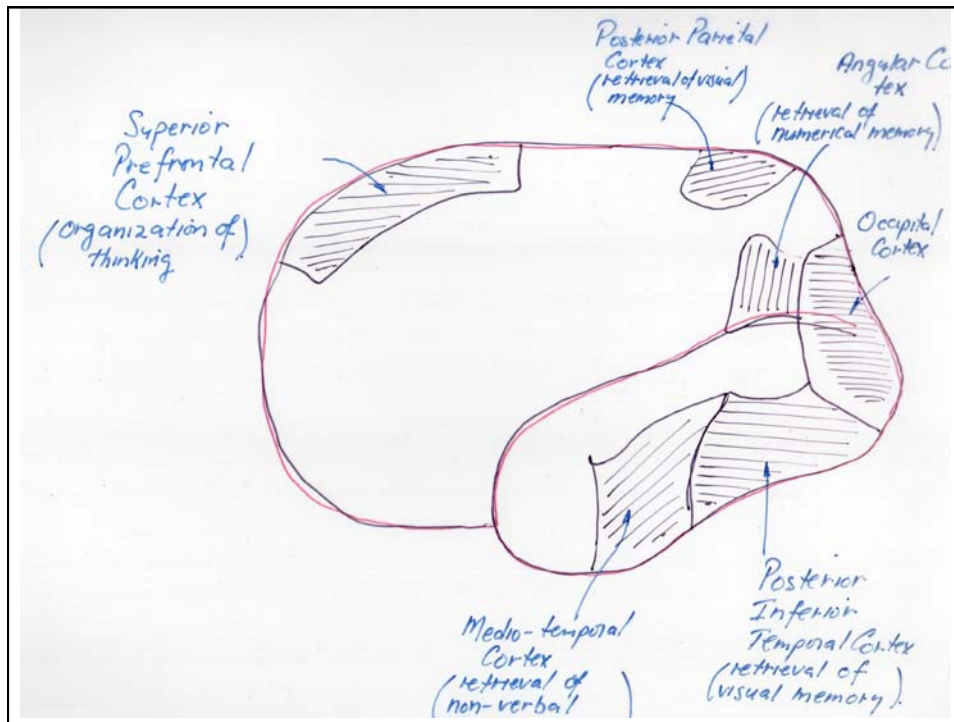 Superior
Prefrontal
Cortex
(organization of
thinking)
Posterior Parietal
Cortex
(retrieval of visual
memory)
Angular Co
tex
(retrieval of
numerical memory)
Occapital
Cortex
Medio-temporal
Cortex
(retrieval of
non-verbal
Posterior
Inferior
Temporal Cortex
(retrieval of
visual memory).